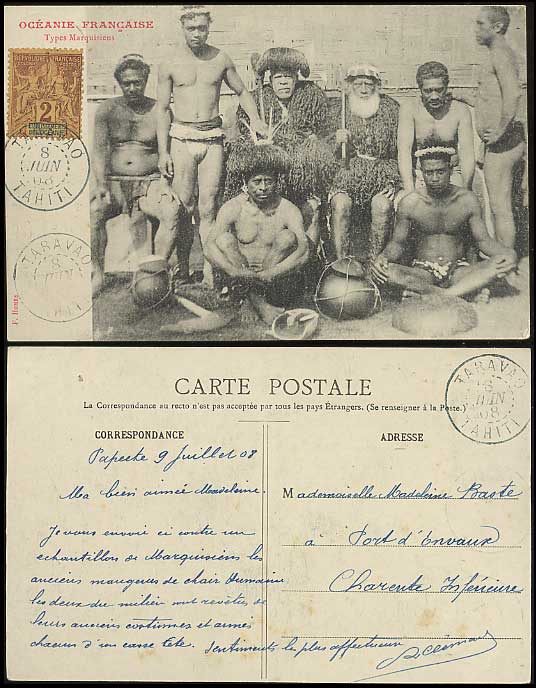 OCÉANIE FRANÇAISE
Types Marquisiens
RÉPUBLIQUE FRANÇAISE
2
TARAVAO
8
JUIN
08
TAHITI
TARAVAO
8
JUIN
F. Homes
CARTE POSTALE
La Correspondance au recto n'est pas acceptée par tous les pays Étrangers. (Se renseigner à la Poste.)
TARAVAO
8
JUIN
08
TAHITI
CORRESPONDANCE
ADRESSE
Papeete 9 Juillet 08
Ma bien aimée Madeleine.
Je vous envoie ci contre un
échantillon de Marquisiens les
anciens mangeurs de chair humaine
les deux du milieu sont revêtus de
leurs anciens costumes et armés
chacun d'un casse tête.
Sentiments les plus affectueux
Mademoiselle Madeleine
à Port d'Envaux
Charente Inférieure